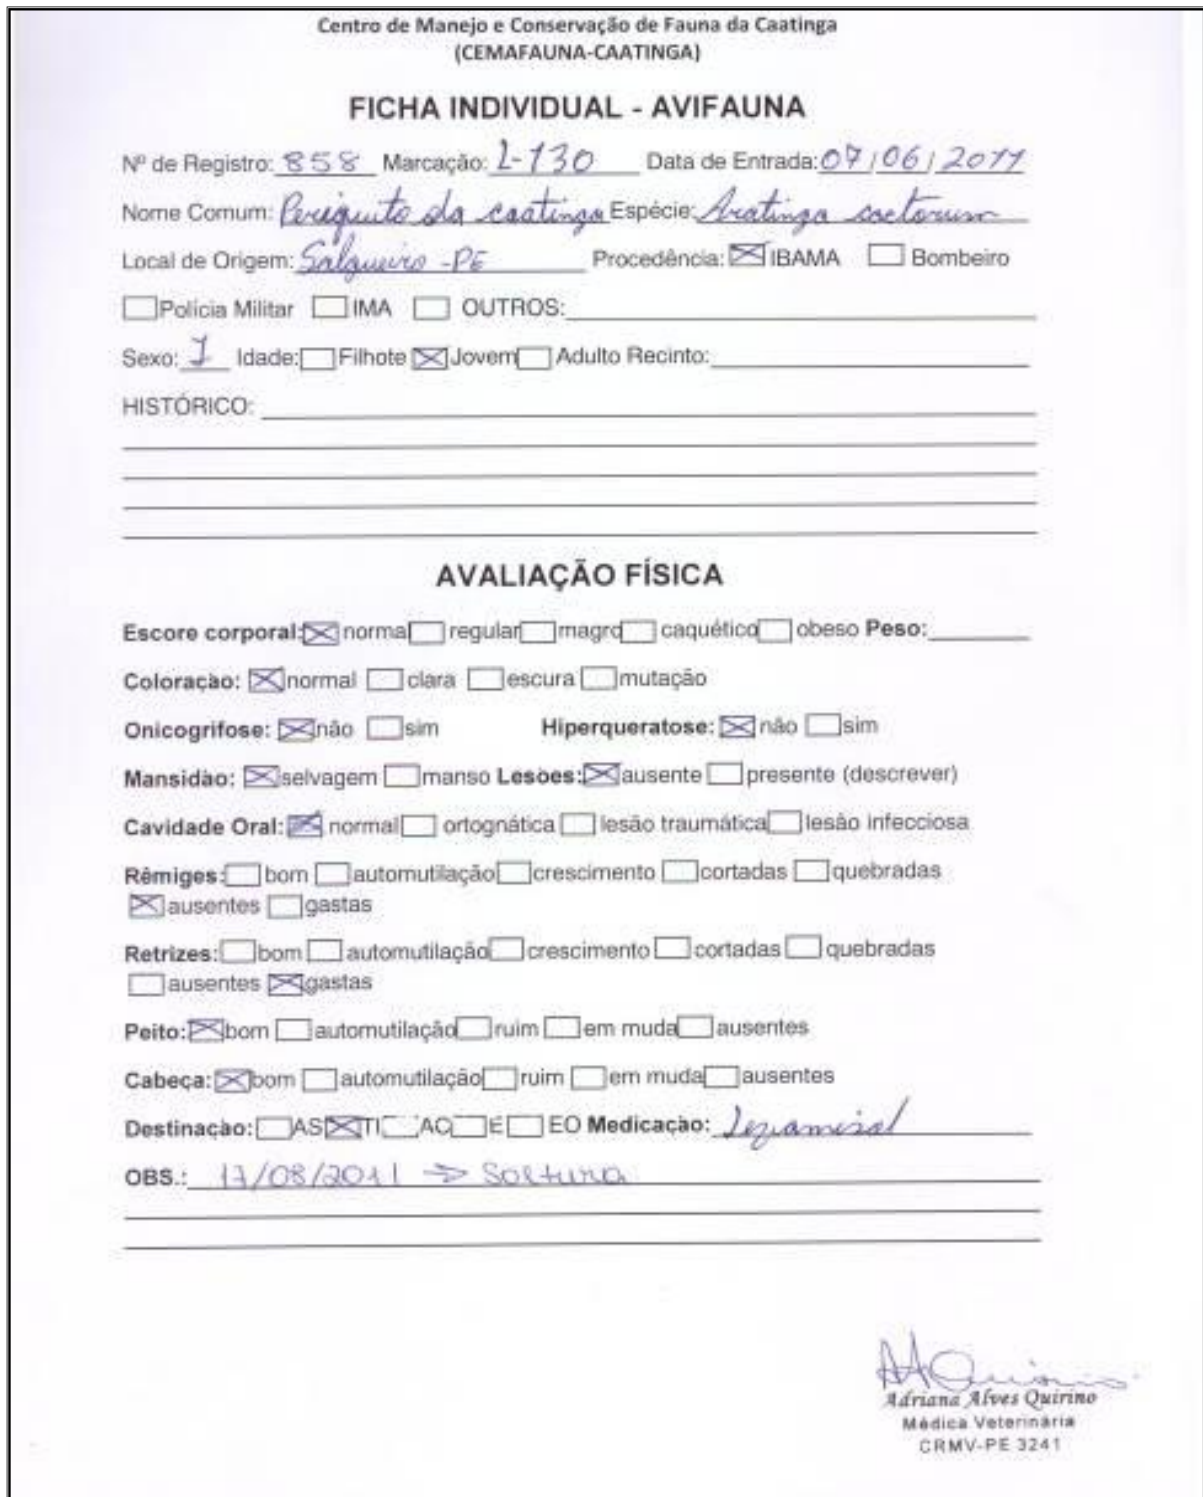 Centro de Manejo e Conservação de Fauna da Caatinga
(CEMAFAUNA-CAATINGA)
FICHA INDIVIDUAL - AVIFAUNA
Nº de Registro: 858 Marcação: L-130 Data de Entrada: 07/06/2011
Nome Comum: Periquito da caatinga Espécie: Aratinga cactorum
Local de Origem: Salgueiro-PE Procedência: ☒ IBAMA ☐ Bombeiro
☐ Polícia Militar ☐ IMA ☐ OUTROS:
Sexo: I Idade: ☐ Filhote ☒ Jovem ☐ Adulto Recinto:
HISTÓRICO:
AVALIAÇÃO FÍSICA
Escore corporal: ☒ normal ☐ regular ☐ magro ☐ caquético ☐ obeso Peso:
Coloração: ☒ normal ☐ clara ☐ escura ☐ mutação
Onicogrifose: ☒ não ☐ sim Hiperqueratose: ☒ não ☐ sim
Mansidão: ☒ selvagem ☐ manso Lesões: ☒ ausente ☐ presente (descrever)
Cavidade Oral: ☒ normal ☐ ortognática ☐ lesão traumática ☐ lesão infecciosa
Rêmiges: ☐ bom ☐ automutilação ☐ crescimento ☐ cortadas ☐ quebradas
☒ ausentes ☐ gastas
Retrizes: ☐ bom ☐ automutilação ☐ crescimento ☐ cortadas ☐ quebradas
☐ ausentes ☒ gastas
Peito: ☒ bom ☐ automutilação ☐ ruim ☐ em muda ☐ ausentes
Cabeça: ☒ bom ☐ automutilação ☐ ruim ☐ em muda ☐ ausentes
Destinação: ☐ AS ☒ TI ☐ AO ☐ E ☐ EO Medicação:
OBS.: 17/08/2011 ⇒ Soltura
Adriana Alves Quirino
Médica Veterinária
CRMV-PE 3241